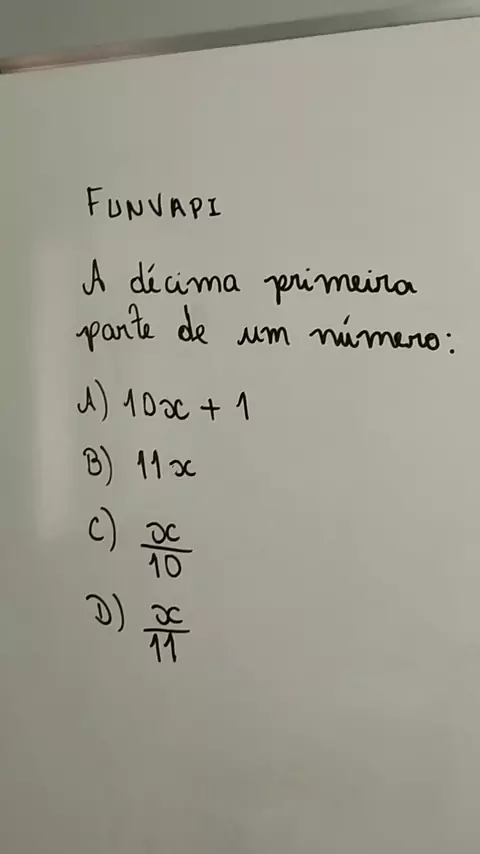 FUNVAPI
A décima primeira
parte de um número:
A) 10x + 1
B) 11x
C) x/10
D) x/11